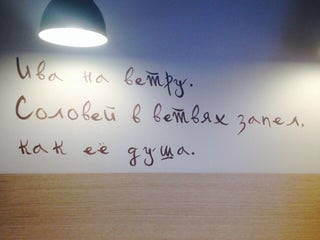 Ива на ветру.
Соловей в ветвях запел.
как её душа.